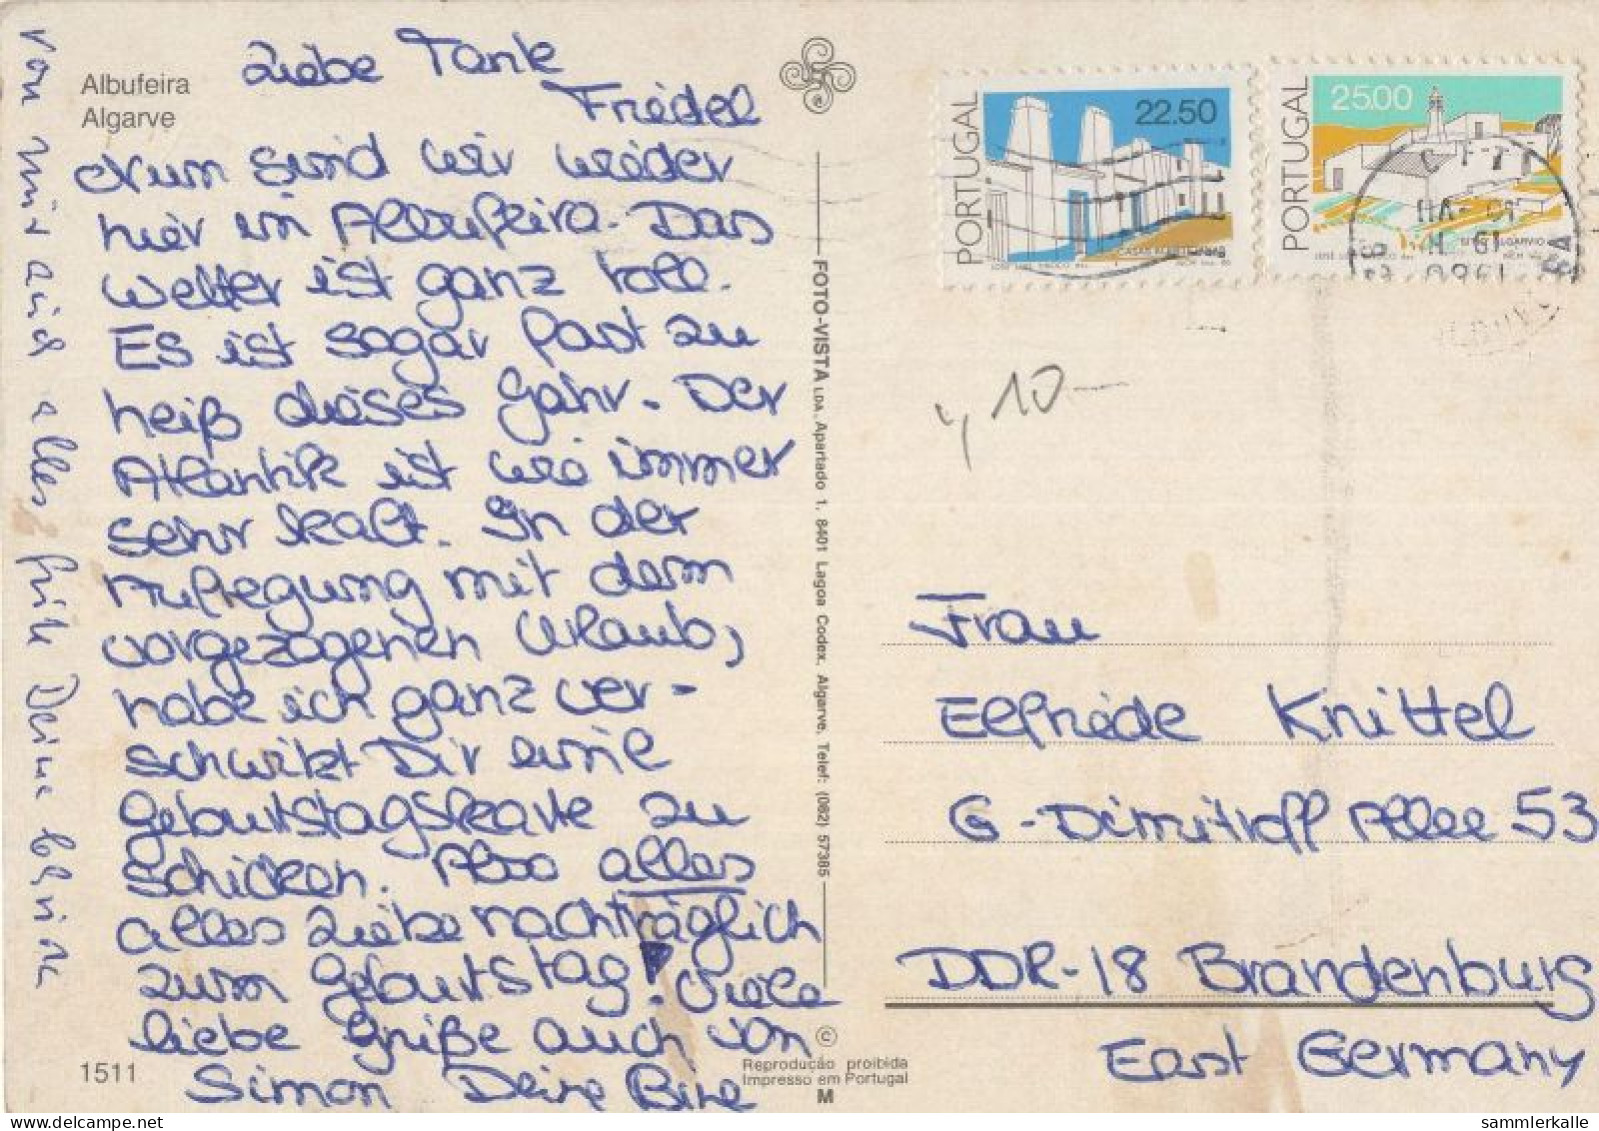 Albufeira
Algarve
Liebe Tante
Friedel
Nun sind wir wieder
hier in Albufeira. Das
Wetter ist ganz toll.
Es ist sogar fast zu
heiß dieses Jahr. Der
Atlantik ist wie immer
sehr kalt. In der
Aufregung mit dem
vorgezogenen Urlaub,
habe ich ganz ver-
schwitzt Dir eine
Geburtstagskarte zu
schicken. Also alles
alles Liebe nachträglich
zum Geburtstag! Viele
liebe Grüße auch von
Simon Deine
von mir auch alles gute Deine
1511
FOTO-VISTA LDA. Apartado 1. 8401 Lagoa Codex. Algarve. Telef: (082) 57385
©
Reprodução proibida
Impresso em Portugal
M
PORTUGAL
22.50
PORTUGAL
25.00
CTT
10-
Frau
Elfriede Knittel
G-Dimitroff Allee 53
DDR-18 Brandenburg
East Germany
sammlerkalle